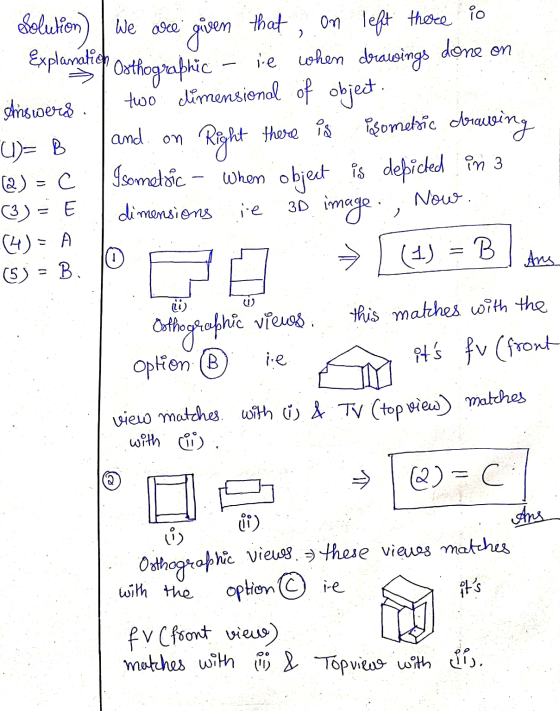 Solution)
Explanation
⇒
Answers.
(1) = B
(2) = C
(3) = E
(4) = A
(5) = B.
We are given that, on left there is
Orthographic - i.e when drawings done on
two dimensional of object.
and on Right there is isometric drawing
Isometric - When object is depicted in 3
dimensions i.e 3D image., Now.
① ⇒ (1) = B Ans
(ii) (i)
Orthographic views. this matches with the
option (B) i.e it's fv (front
view matches with (i) & TV (top view) matches
with (ii).
② ⇒ (2) = C Ans
(i) (ii)
Orthographic views. ⇒ these views matches
with the option (C) i.e it's
fv (front view)
matches with (ii) & Topview with (ii).